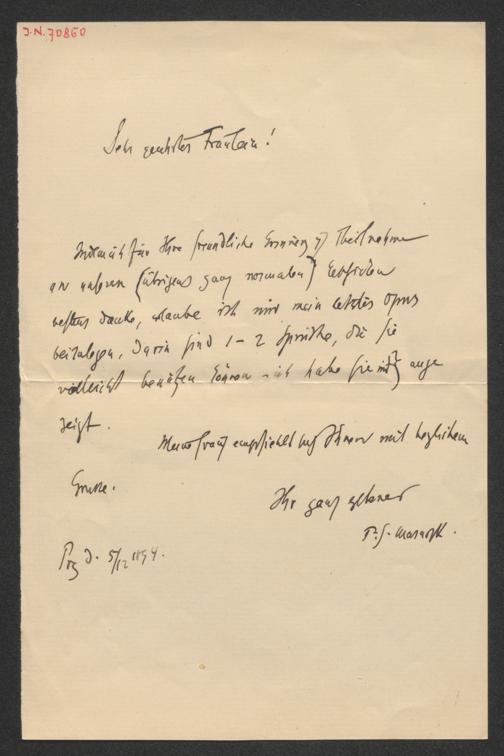 J.N. 70860
Sehr geehrtes Fräulein!
Indem ich für Ihre freundliche Erinnerung u Theilnahme
an unseren (übrigens ganz normalen)
bestens danke, erlaube ich mir mein letztes Opus
beizulegen. Darin sind 1-2 Sprüche, die Sie
vielleicht benützen können - ich habe sie mit } ange
zeigt.
Meine Frau empfiehlt sich Ihnen mit herzlichem
Grusse.
Ihr ganz ergebener
T. G. Masaryk.
Prg d. 5/12 1894.